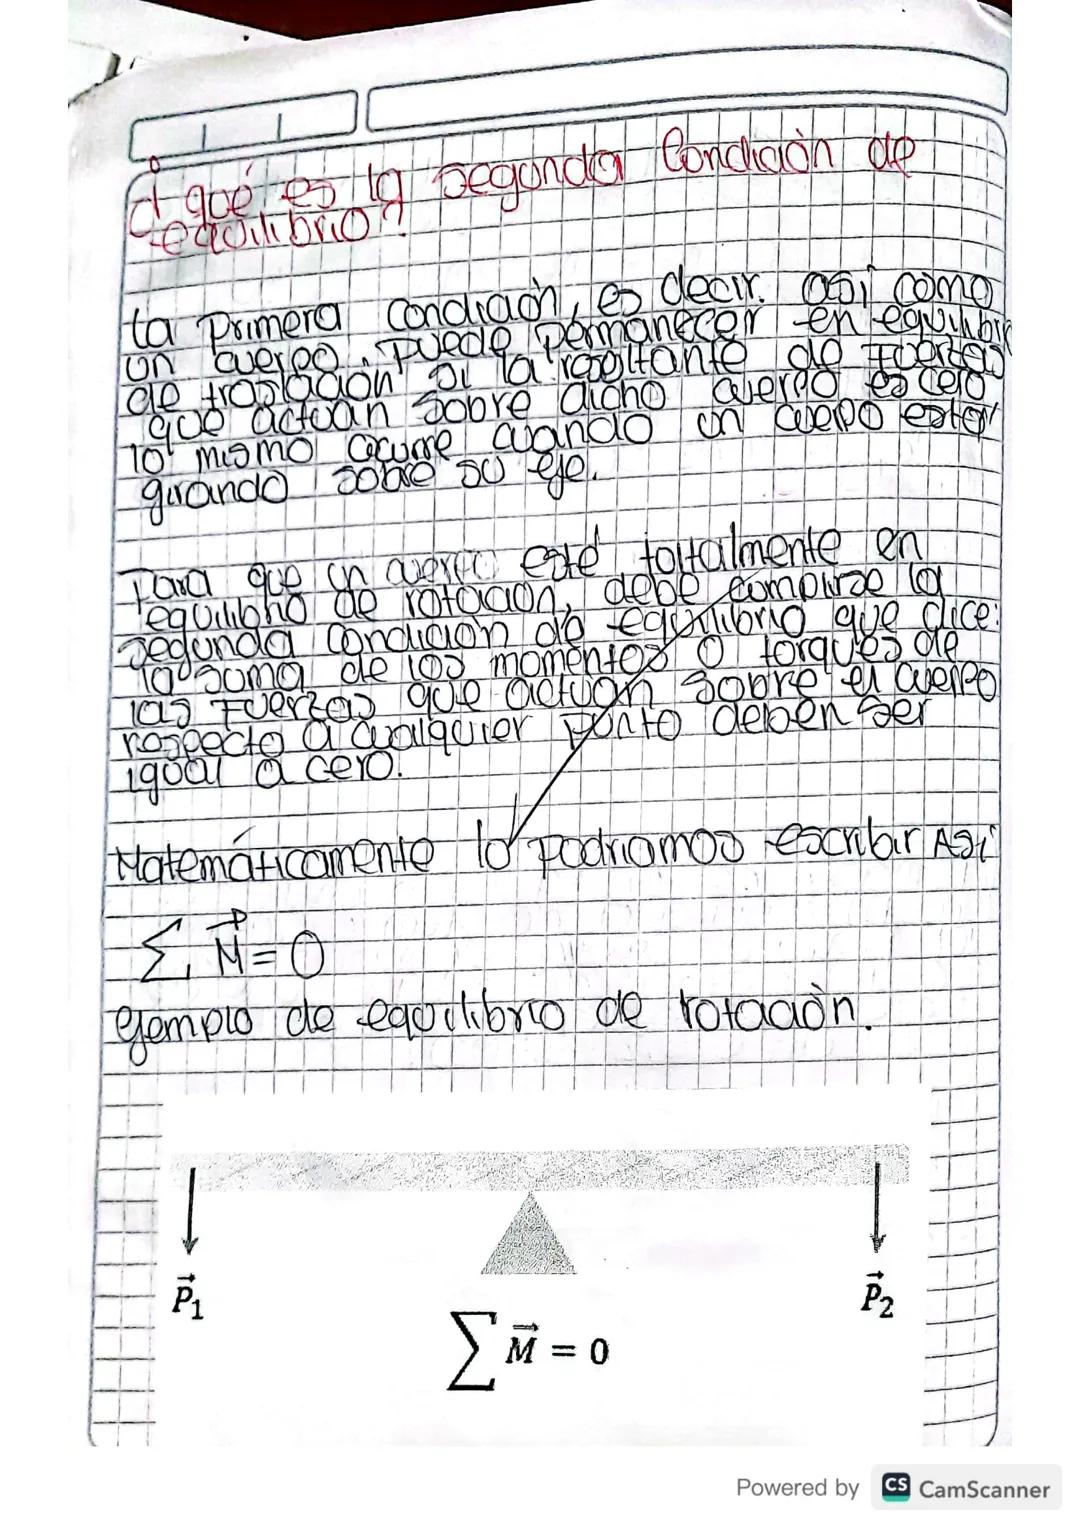 ¿ qué es la segunda Condición de
equilibrio?
La Primera condición, es decir. así como
un cuerpo, puede permanecer en equilibri
de traslación si la resultante de Fuerzas
que actúan sobre dicho cuerpo es cero
lo mismo ocurre cuando un cuerpo estar
girando sobre su eje.
Para que un cuerpo esté toltalmente en
equilibrio de rotación, debe cumplirse la
segunda condición de equilibrio que dice:
la suma de los momentos o torques de
las Fuerzas que actúan sobre el cuerpo
respecto a cualquier punto deben ser
igual a cero.
Matemáticamente lo podríamos escribir Así
∑ M⃗ = 0
ejemplo de equilibrio de rotación.
P⃗₁
P⃗₂
∑ M⃗ = 0
Powered by CS CamScanner